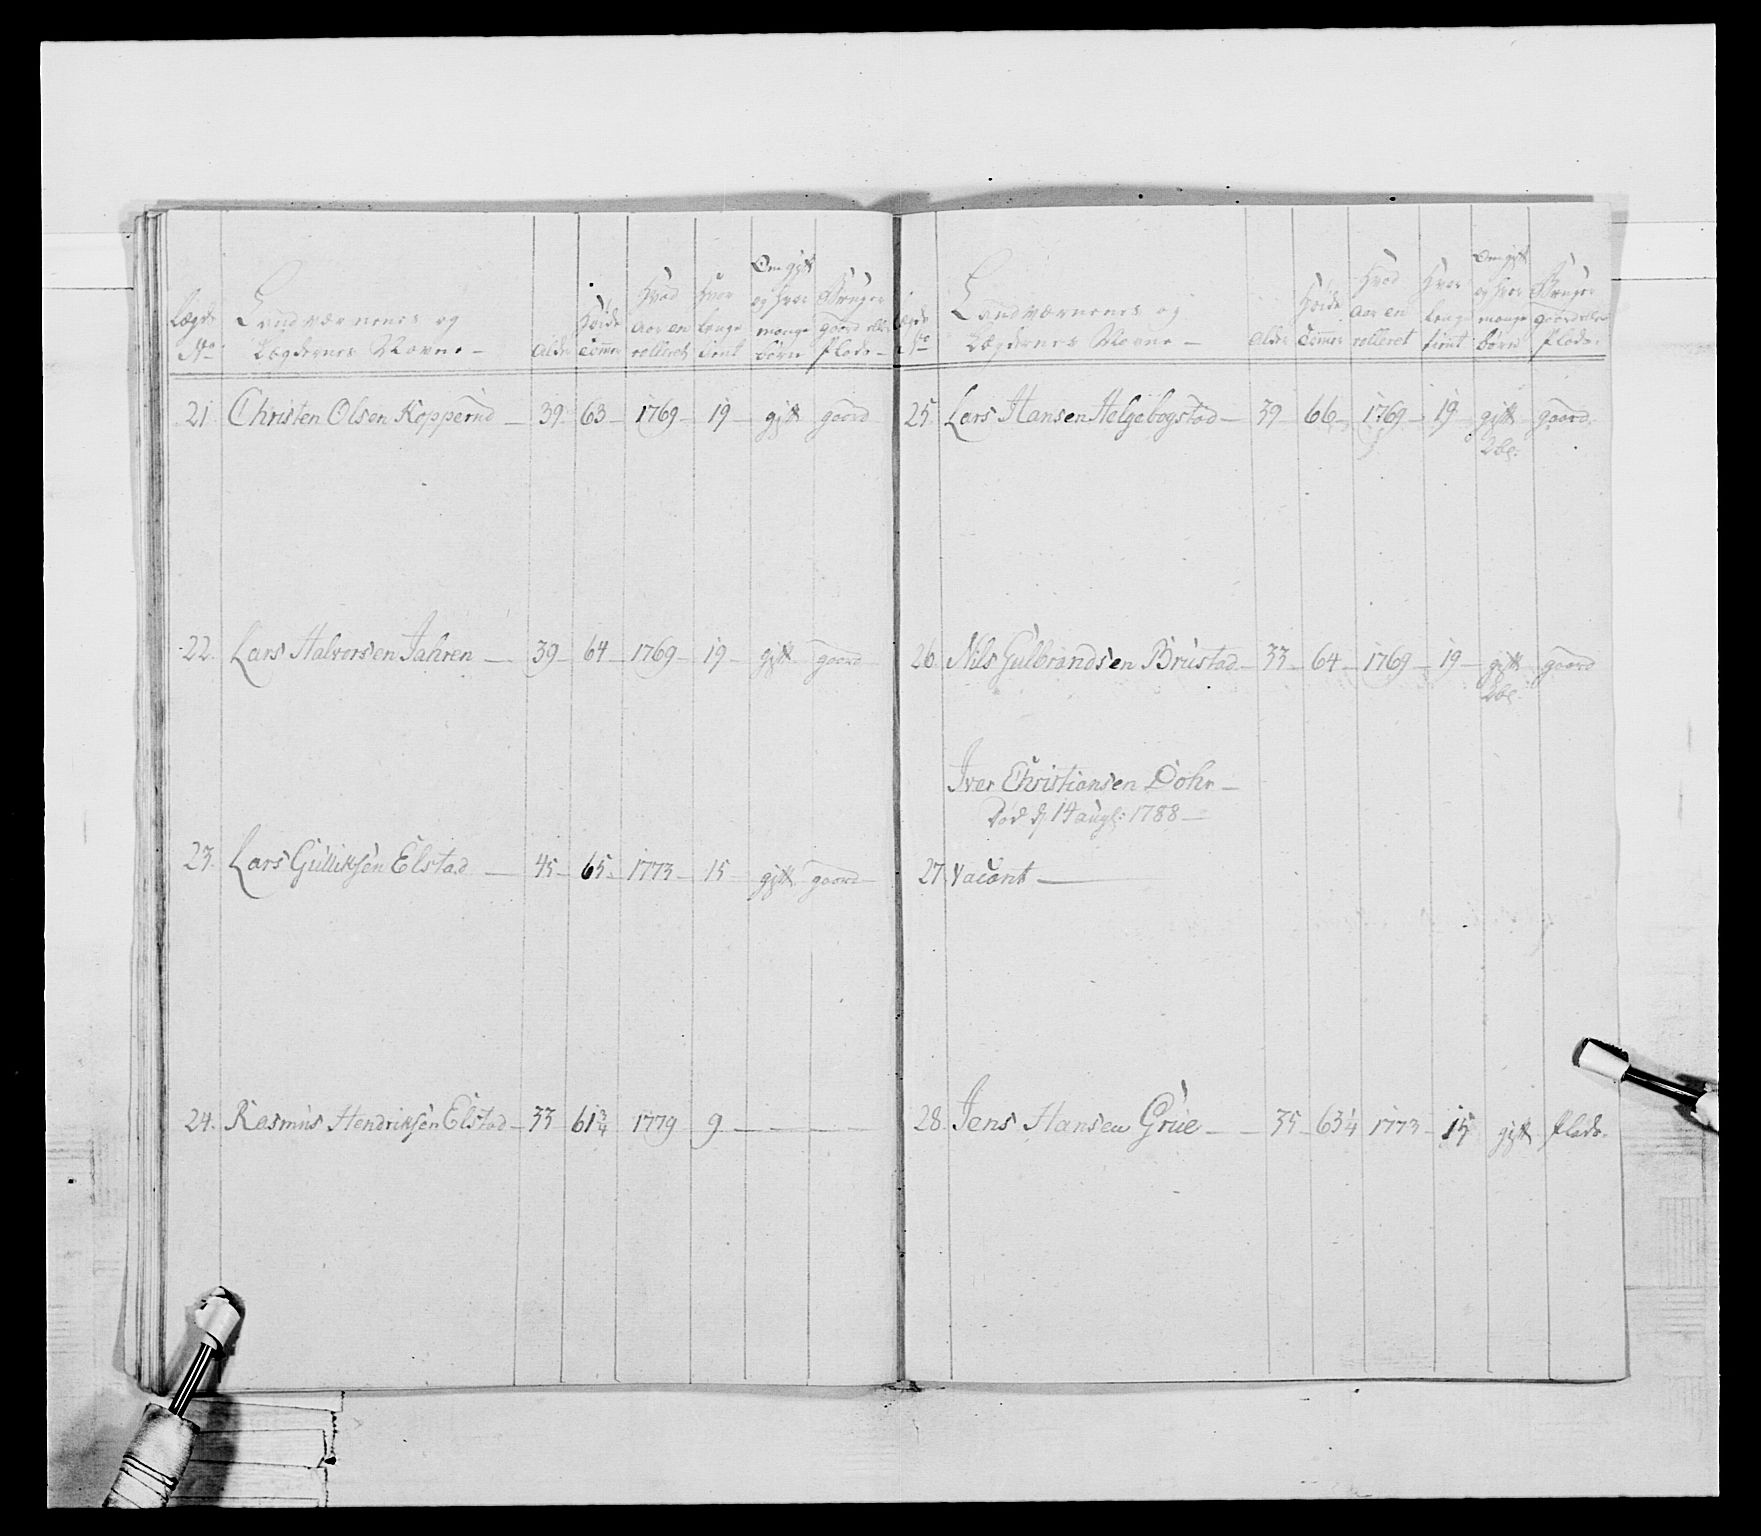 Lægds No
Landværnenes og
Lægdernes Navne -
Alder
Høide Tommer
Hvad aar en rolleret
Hvor lenge tient
Om gift og hvor mange børn
Bruger gaard eller Plads -
21. Christen Olsen Koppernd - 39. 63 - 1769 - 19 - gift gaard
22. Lars Halvorsen Jahren - 39 - 64 - 1769 - 19 - gift gaard
23. Lars Gullichsen Elstad - 45 - 65 - 1773 - 15 - gift gaard
24. Rasmus Hendrichsen Elstad - 33 61 3/4 1779 9 - - -
Lægds No
Landværnenes og
Lægdernes Navne -
Alder
Høide Tommer
Hvad aar en rolleret
Hvor lenge tient
Om gift og hvor mange børn
Bruger gaard eller Plads.
25. Lars Hansen Helgebogstad - 39 - 66 - 1769 - 19 - gift gaard
26. Nils Gulbrandsen Brustad - 33 - 64 - 1769 - 19 - gift gaard
Iver Christiansen Dohr -
Død d 14 augs: 1788 -
27. Vacant -
28. Jens Hansen Grüe - 35 - 63 1/4 1773 - 15 gift Plads.